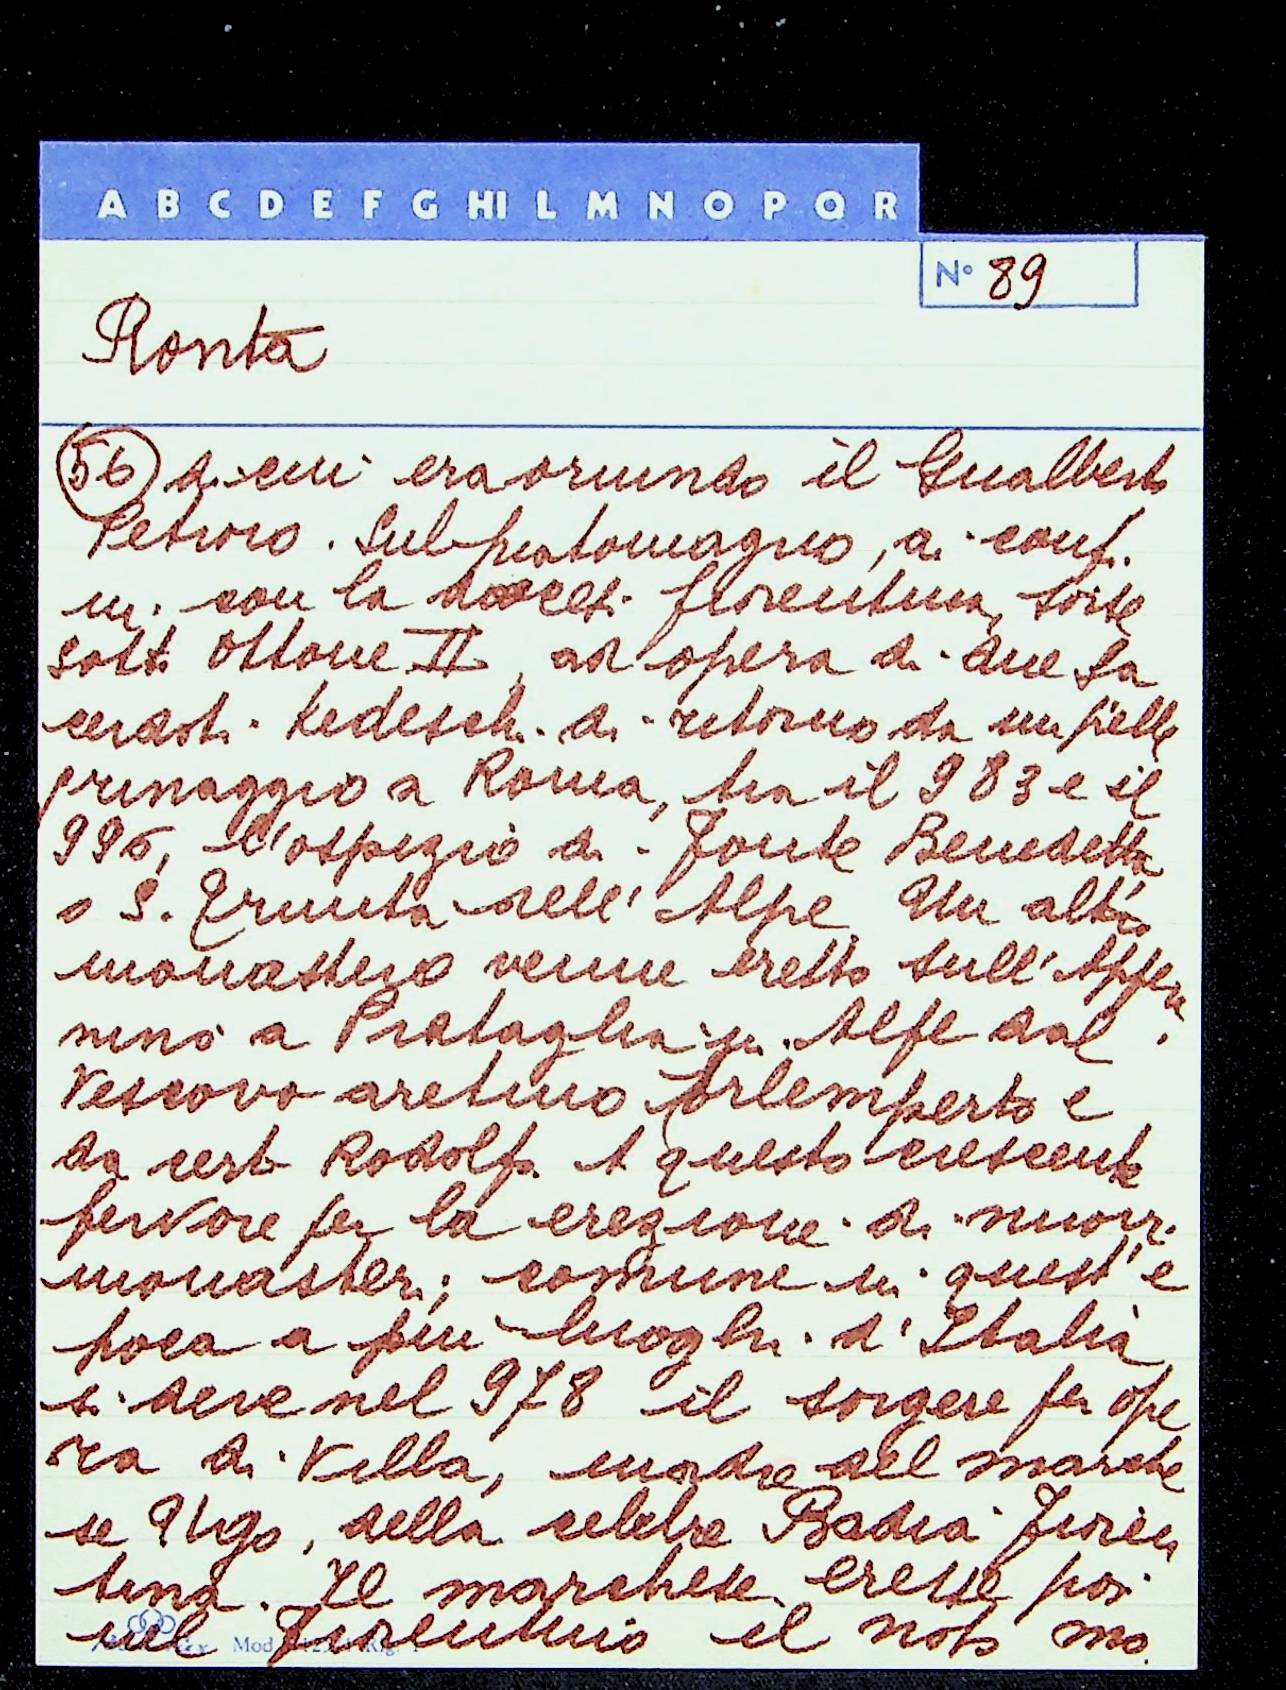 A B C D E F G HI L M N O P Q R
N° 89
Ronta
56 di cui era oriundo il Gualberto
Petroio. Sul Pratomagno, ai confi
ni con la diocesi fiorentina, sorse
sotto Ottone II, ad opera di due sa
cerdoti tedeschi di ritorno da un pelle
grinaggio a Roma, tra il 983 e il
996, l'ospizio di Fonte Benedetta
o S. Trinita dell'Alpe. Un altro
monastero venne eretto sull'Appen
nino a Prataglia in Alpe dal
Vescovo aretino Elemperto e
da certo Rodolfo. A questo crescente
fervore per la erezione di nuovi
monasteri, comune in quest'e
poca a più luoghi d'Italia,
si deve nel 978 il sorgere per ope
ra di Villa, madre del marche
se Ugo, della celebre Badia Fioren
tina. Il marchese eresse poi
nel Fiorentino il noto mo
Mod